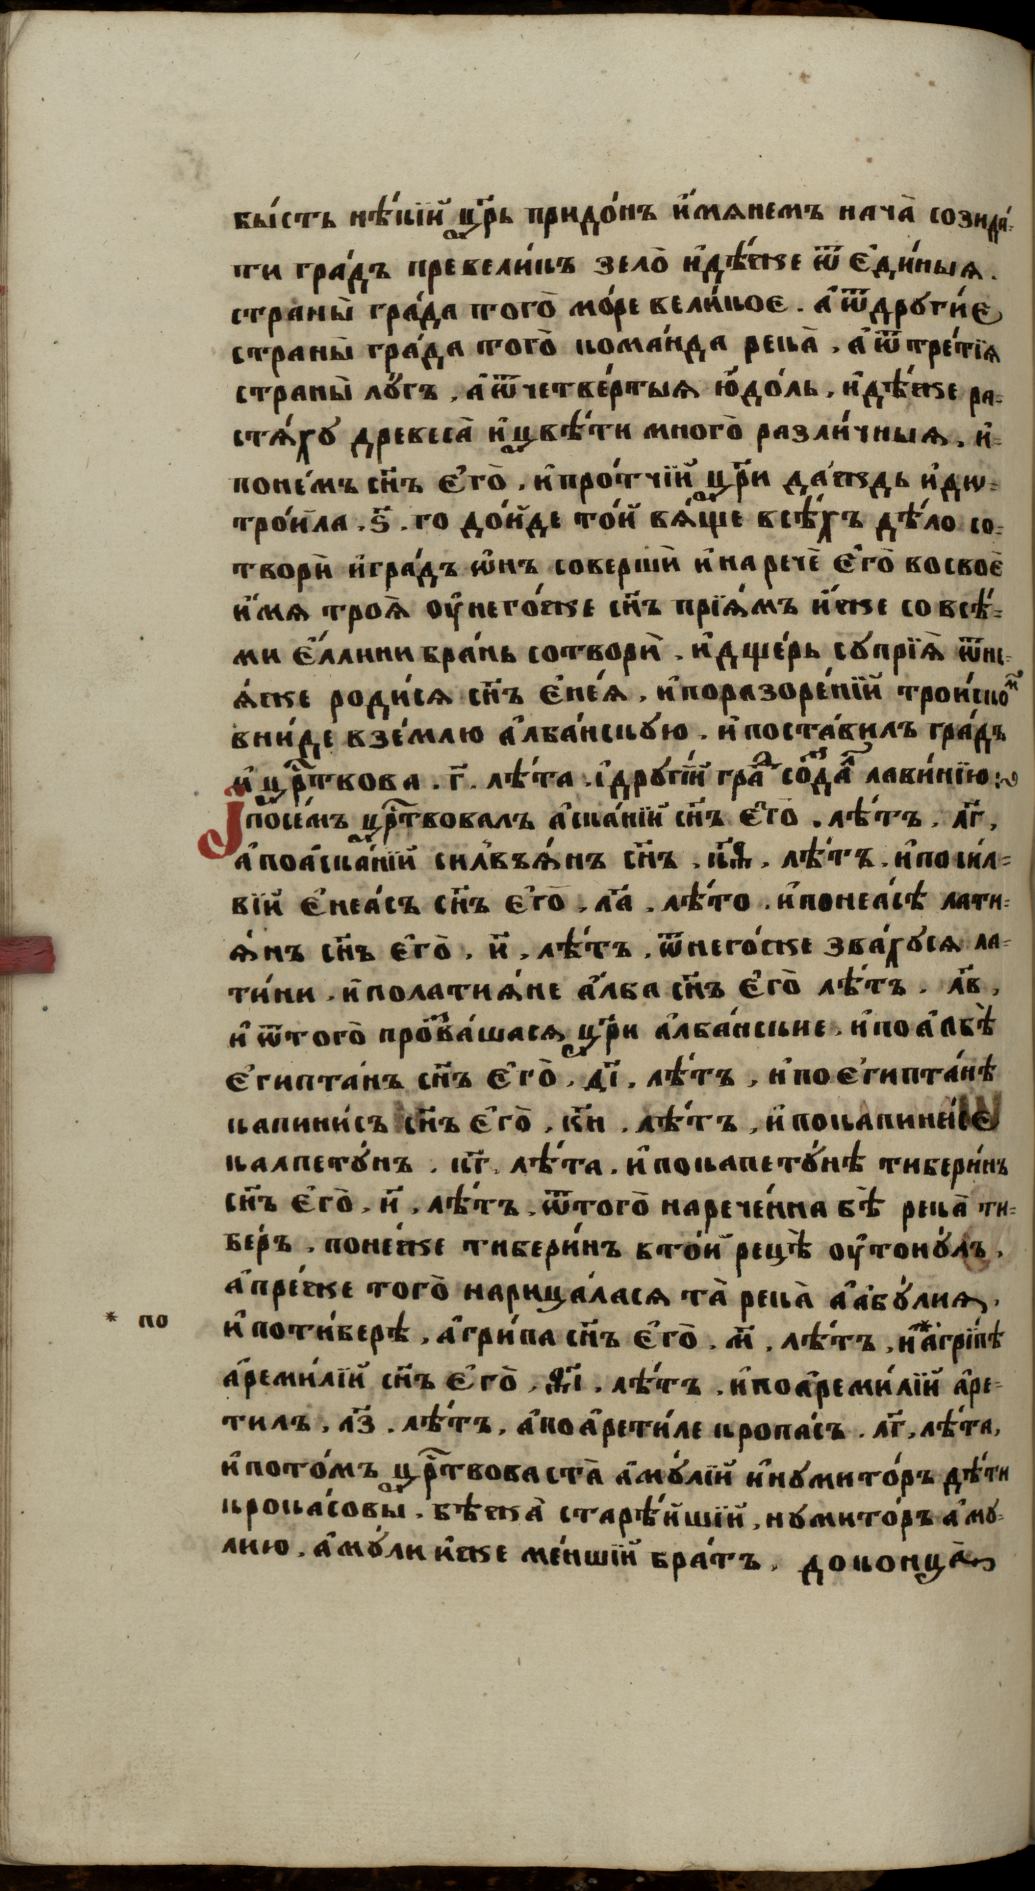 бы́сть нѣ́кїй црⷭ҇ь придо́нъ и҆́мянемъ нача̀ созида́-
ти гра́дъ превели́къ зело̀ и҆дѣ́же ѿ є҆ди́ныя.
страны̀ гра́да того̀ мо́ре вели́кое. а҆ ѿдруги́є
страны̀ гра́да того̀ кома́нда река̀, а҆ ѿтре́тїя
страны̀ лу́гъ, а҆ ѿчетве́ртыя ю҆до́ль, и҆дѣ́же ра-
стя́ху древеса̀ и҆цвѣ́ти много̀ разли́чныя, и҆-
поне́мъ сн҃ъ є҆го̀, и҆про́тчїй црⷭ҇и да́ждь и҆дѡ-
тро́ила. ѕ҃. го до́йде то́й вя́ще всѣ́хъ дѣ́ло со-
творѝ и҆гра́дъ ѡ҆нъ совершѝ и҆наречѐ є҆го̀ восвоѐ
и҆́мя троя̀ оу҆него́же сн҃ъ прїя́мъ и҆́же совсѣ́-
ми є҆́ллини бра́нь сотворѝ. и҆дще́рь супрїя̀ ѿне-
я́же роди́ся сн҃ъ є҆не́я, и҆поразоре́нїй трои́скомъ
вни́де взе́млю а҆лба́нскую. и҆поста́вилъ гра́дъ
и҆ црⷭ҇твова. г҃. лѣ́та. і҆другі́й граⷣ со́здаⷧ лави́нїю:
І҆посе́мъ црⷭ҇твовалъ а҆ска́нїй сн҃ъ є҆го̀. лѣ́тъ. лг҃,
а҆поа҆ска́нїй силвъя́нъ сн҃ъ. кѳ҃. лѣ́тъ. и҆поси́л-
вїй є҆неа́съ сн҃ъ є҆го̀. ла҃. лѣ́то. и҆понеа́сѣ лати-
я́нъ сн҃ъ є҆го̀. н҃. лѣ́тъ. ѿнего́же зва́хуся ла-
ти́ни. и҆полатия́не а҆́лба сн҃ъ є҆го̀ лѣ́тъ. лв҃,
и҆ ѿтого̀ прозва́шася црⷭ҇и а҆лба́нские. и҆поа҆лбѣ̀
є҆гипта́нъ сн҃ъ є҆го̀. ді҃. лѣ́тъ, и҆поє҆гипта́нѣ
капини́съ сн҃ъ є҆го̀. кн҃. лѣ́тъ, и҆покапини́се
калпету́нъ. кг҃. лѣ́та. и҆покапету́нѣ тибери́нъ
сн҃ъ є҆го̀. н҃. лѣ́тъ. ѿтого̀ нарече́нна бѣ̀ река̀ ти-
бе́ръ. поне́же тибери́нъ вто́й рецѣ̀ оу҆тону́лъ.
а҆пре́же того̀ нарица́лася та̀ река̀ а҆лбу́лия.
и҆поти́берѣ, а҆гри́па сн҃ъ є҆го̀. м҃. лѣ́тъ, и҆*а҆грі́пѣ
* по
а҆реми́лїй сн҃ъ є҆го̀. ѳі҃. лѣ́тъ. и҆поа҆реми́лїй а҆ре-
тилъ. лз҃. лѣ́тъ, а҆поа҆рети́ле кропа́съ. лг҃, лѣ́та,
и҆пото́мъ црⷭ҇твоваста̀ а҆му́лїй и҆нумито́ръ дѣ́ти
кропа́совы. бѣ́жа̀ старѣ́йшїй, нумито́ръ а҆му-
лию. а҆му́ли и҆́же ме́ншїй бра́тъ. доконца̀